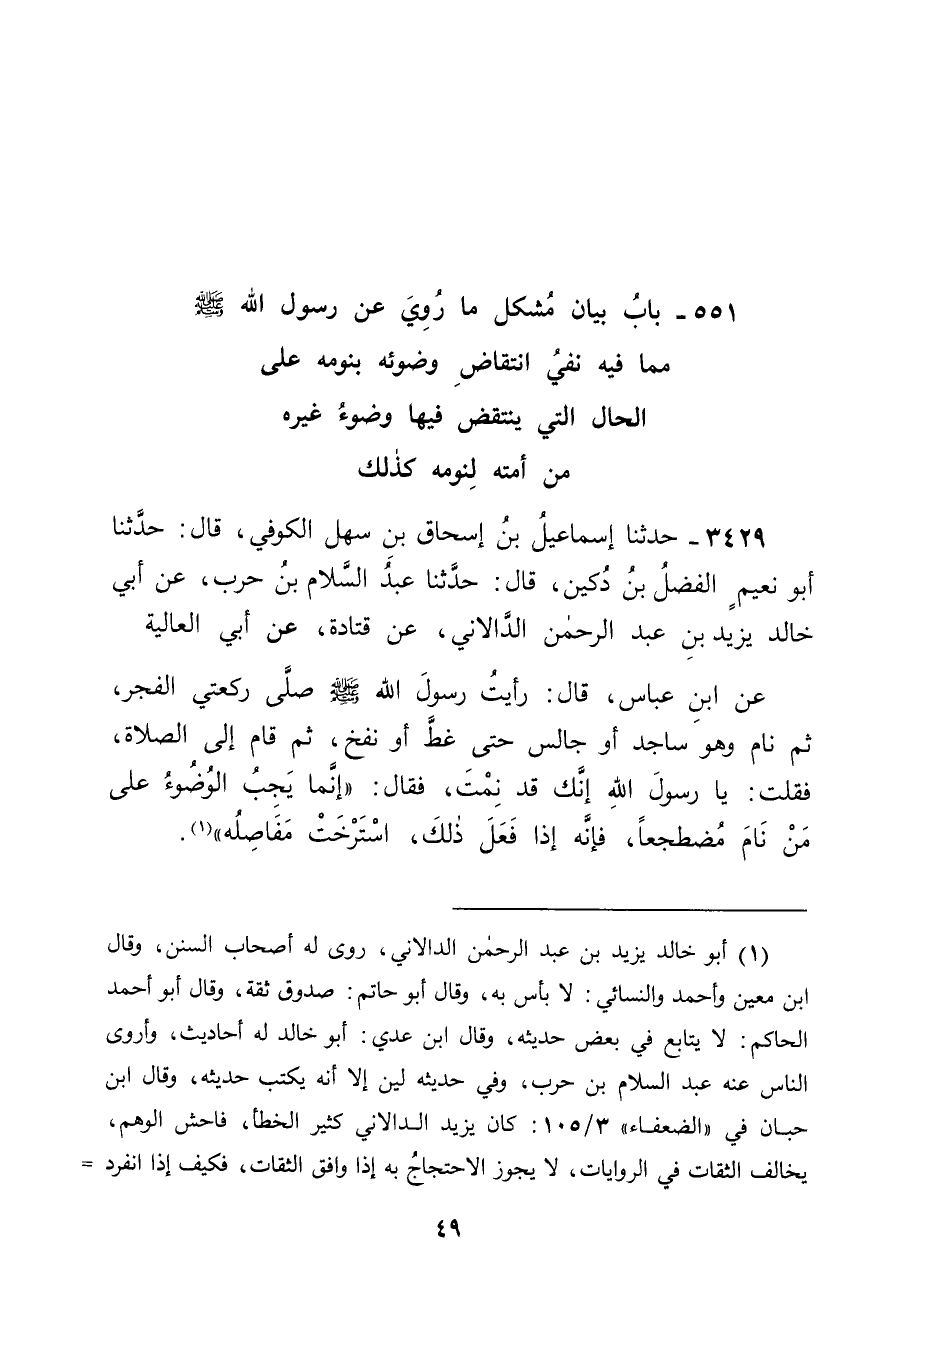 ٥٥١ - بابُ بيان مُشكل ما رُوِيَ عن رسول الله ﷺ
مما فيه نفيُ انتقاضِ وضوئه بنومه على
الحال التي ينتقض فيها وضوءُ غيره
من أمته لِنومه كذٰلك
٣٤٢٩ - حدثنا إسماعيلُ بنُ إسحاق بنِ سهل الكوفي، قال: حدَّثنا
أبو نعيمٍ الفضلُ بنُ دُكين، قال: حدَّثنا عبدُ السَّلام بنُ حرب، عن أبي
خالد يزيد بنِ عبد الرحمٰن الدَّالاني، عن قتادة، عن أبي العالية
عن ابنِ عباس، قال: رأيتُ رسولَ الله ﷺ صلَّى ركعتي الفجر،
ثم نام وهو ساجد أو جالس حتى غطَّ أو نفخ، ثم قام إلى الصلاة،
فقلت: يا رسولَ اللهِ إنَّك قد نِمْتَ، فقال: «إنَّما يَجِبُ الوُضُوءُ على
مَنْ نَامَ مُضطجعاً، فإنَّه إذا فَعَلَ ذٰلكَ، اسْتَرْخَتْ مَفَاصِلُه»(١).
(١) أبو خالد يزيد بن عبد الرحمٰن الدالاني، روى له أصحاب السنن، وقال
ابن معين وأحمد والنسائي: لا بأس به، وقال أبو حاتم: صدوق ثقة، وقال أبو أحمد
الحاكم: لا يتابع في بعض حديثه، وقال ابن عدي: أبو خالد له أحاديث، وأروى
الناس عنه عبد السلام بن حرب، وفي حديثه لين إلا أنه يكتب حديثه، وقال ابن
حبان في «الضعفاء» ١٠٥/٣: كان يزيد الدالاني كثير الخطأ، فاحش الوهم،
يخالف الثقات في الروايات، لا يجوز الاحتجاجُ به إذا وافق الثقات، فكيف إذا انفرد =
٤٩